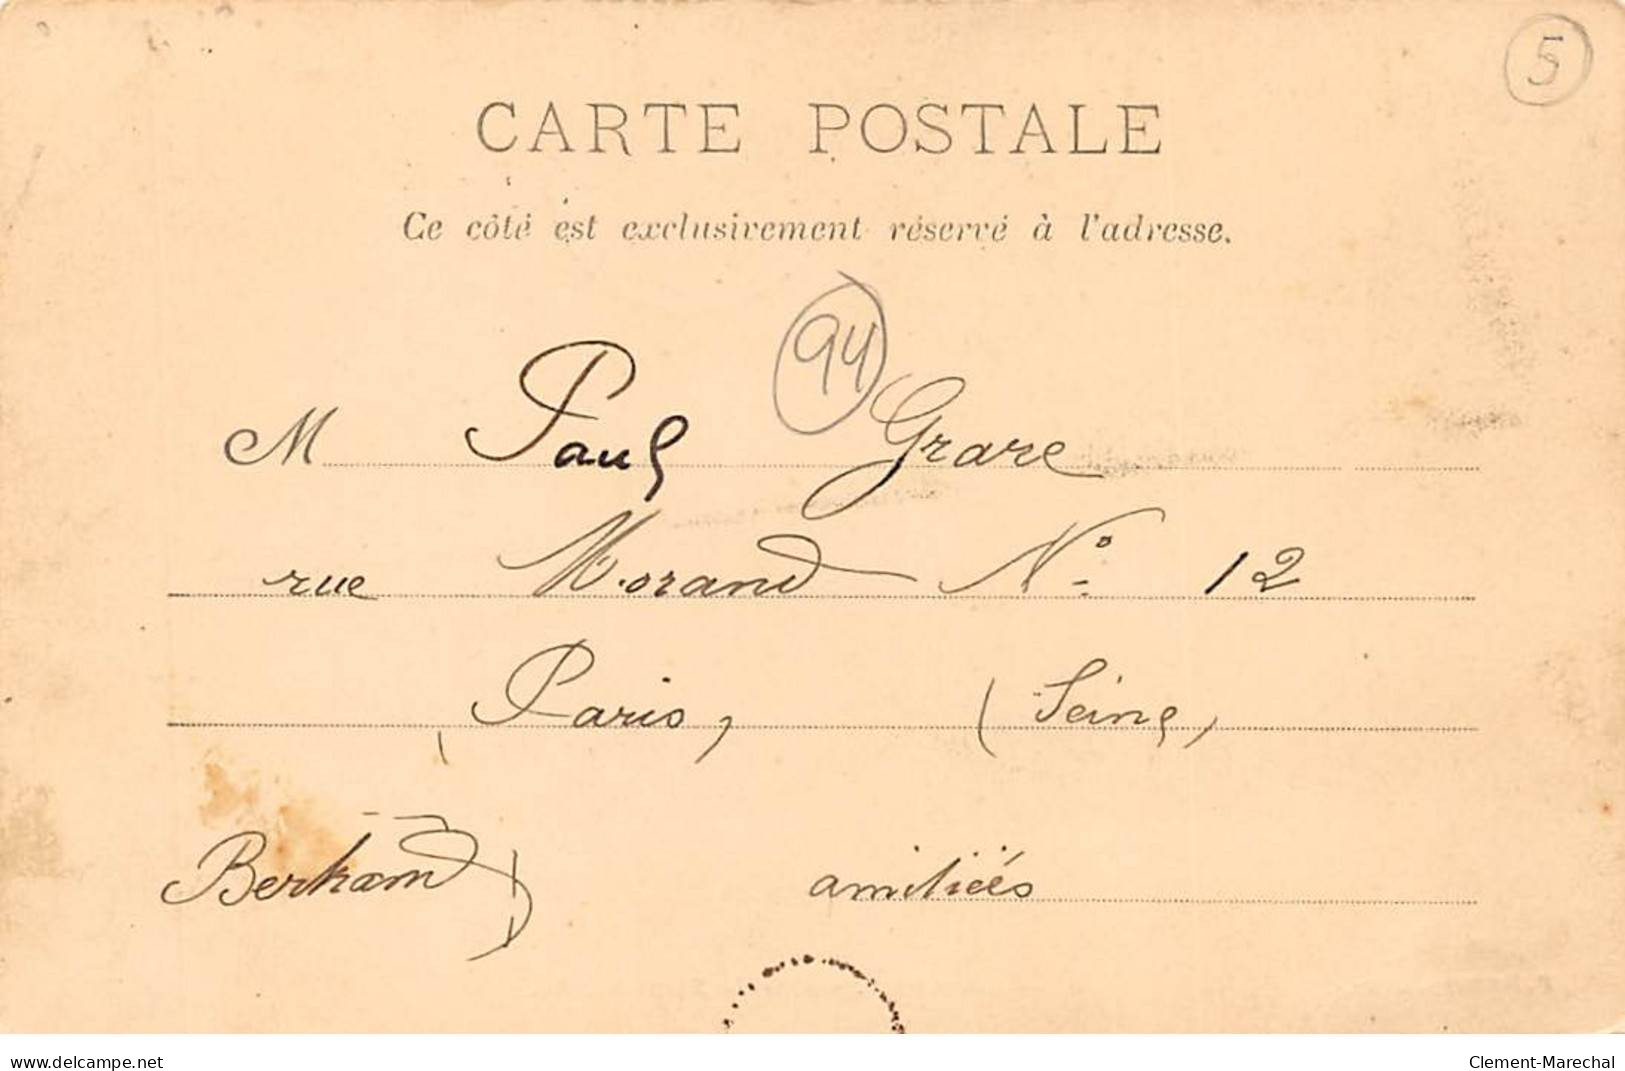 5
CARTE POSTALE
Ce côté est exclusivement réservé à l'adresse.
94
M Paul Grare
rue Morand N° 12
Paris, (Seine)
Bertrand amitiés
www.delcampe.net Clement-Marechal